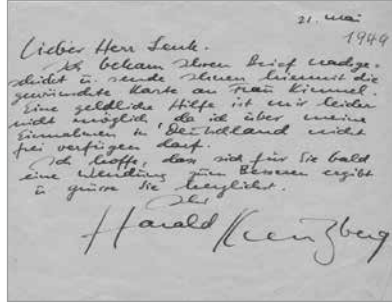 21. Mai
1949
Lieber Herr Lenk.
Ich bekam Ihren Brief nachge-
schickt u. sende Ihnen hiermit die
gewünschte Karte an Frau Kimmel.
Eine geldliche Hilfe ist mir leider
nicht möglich, da ich über meine
Einnahmen in Deutschland nicht
frei verfügen darf.
Ich hoffe, dass sich für Sie bald
eine Wendung zum Besseren ergibt
u. grüsse Sie herzlichst.
Ihr
Harald Kreuzberg